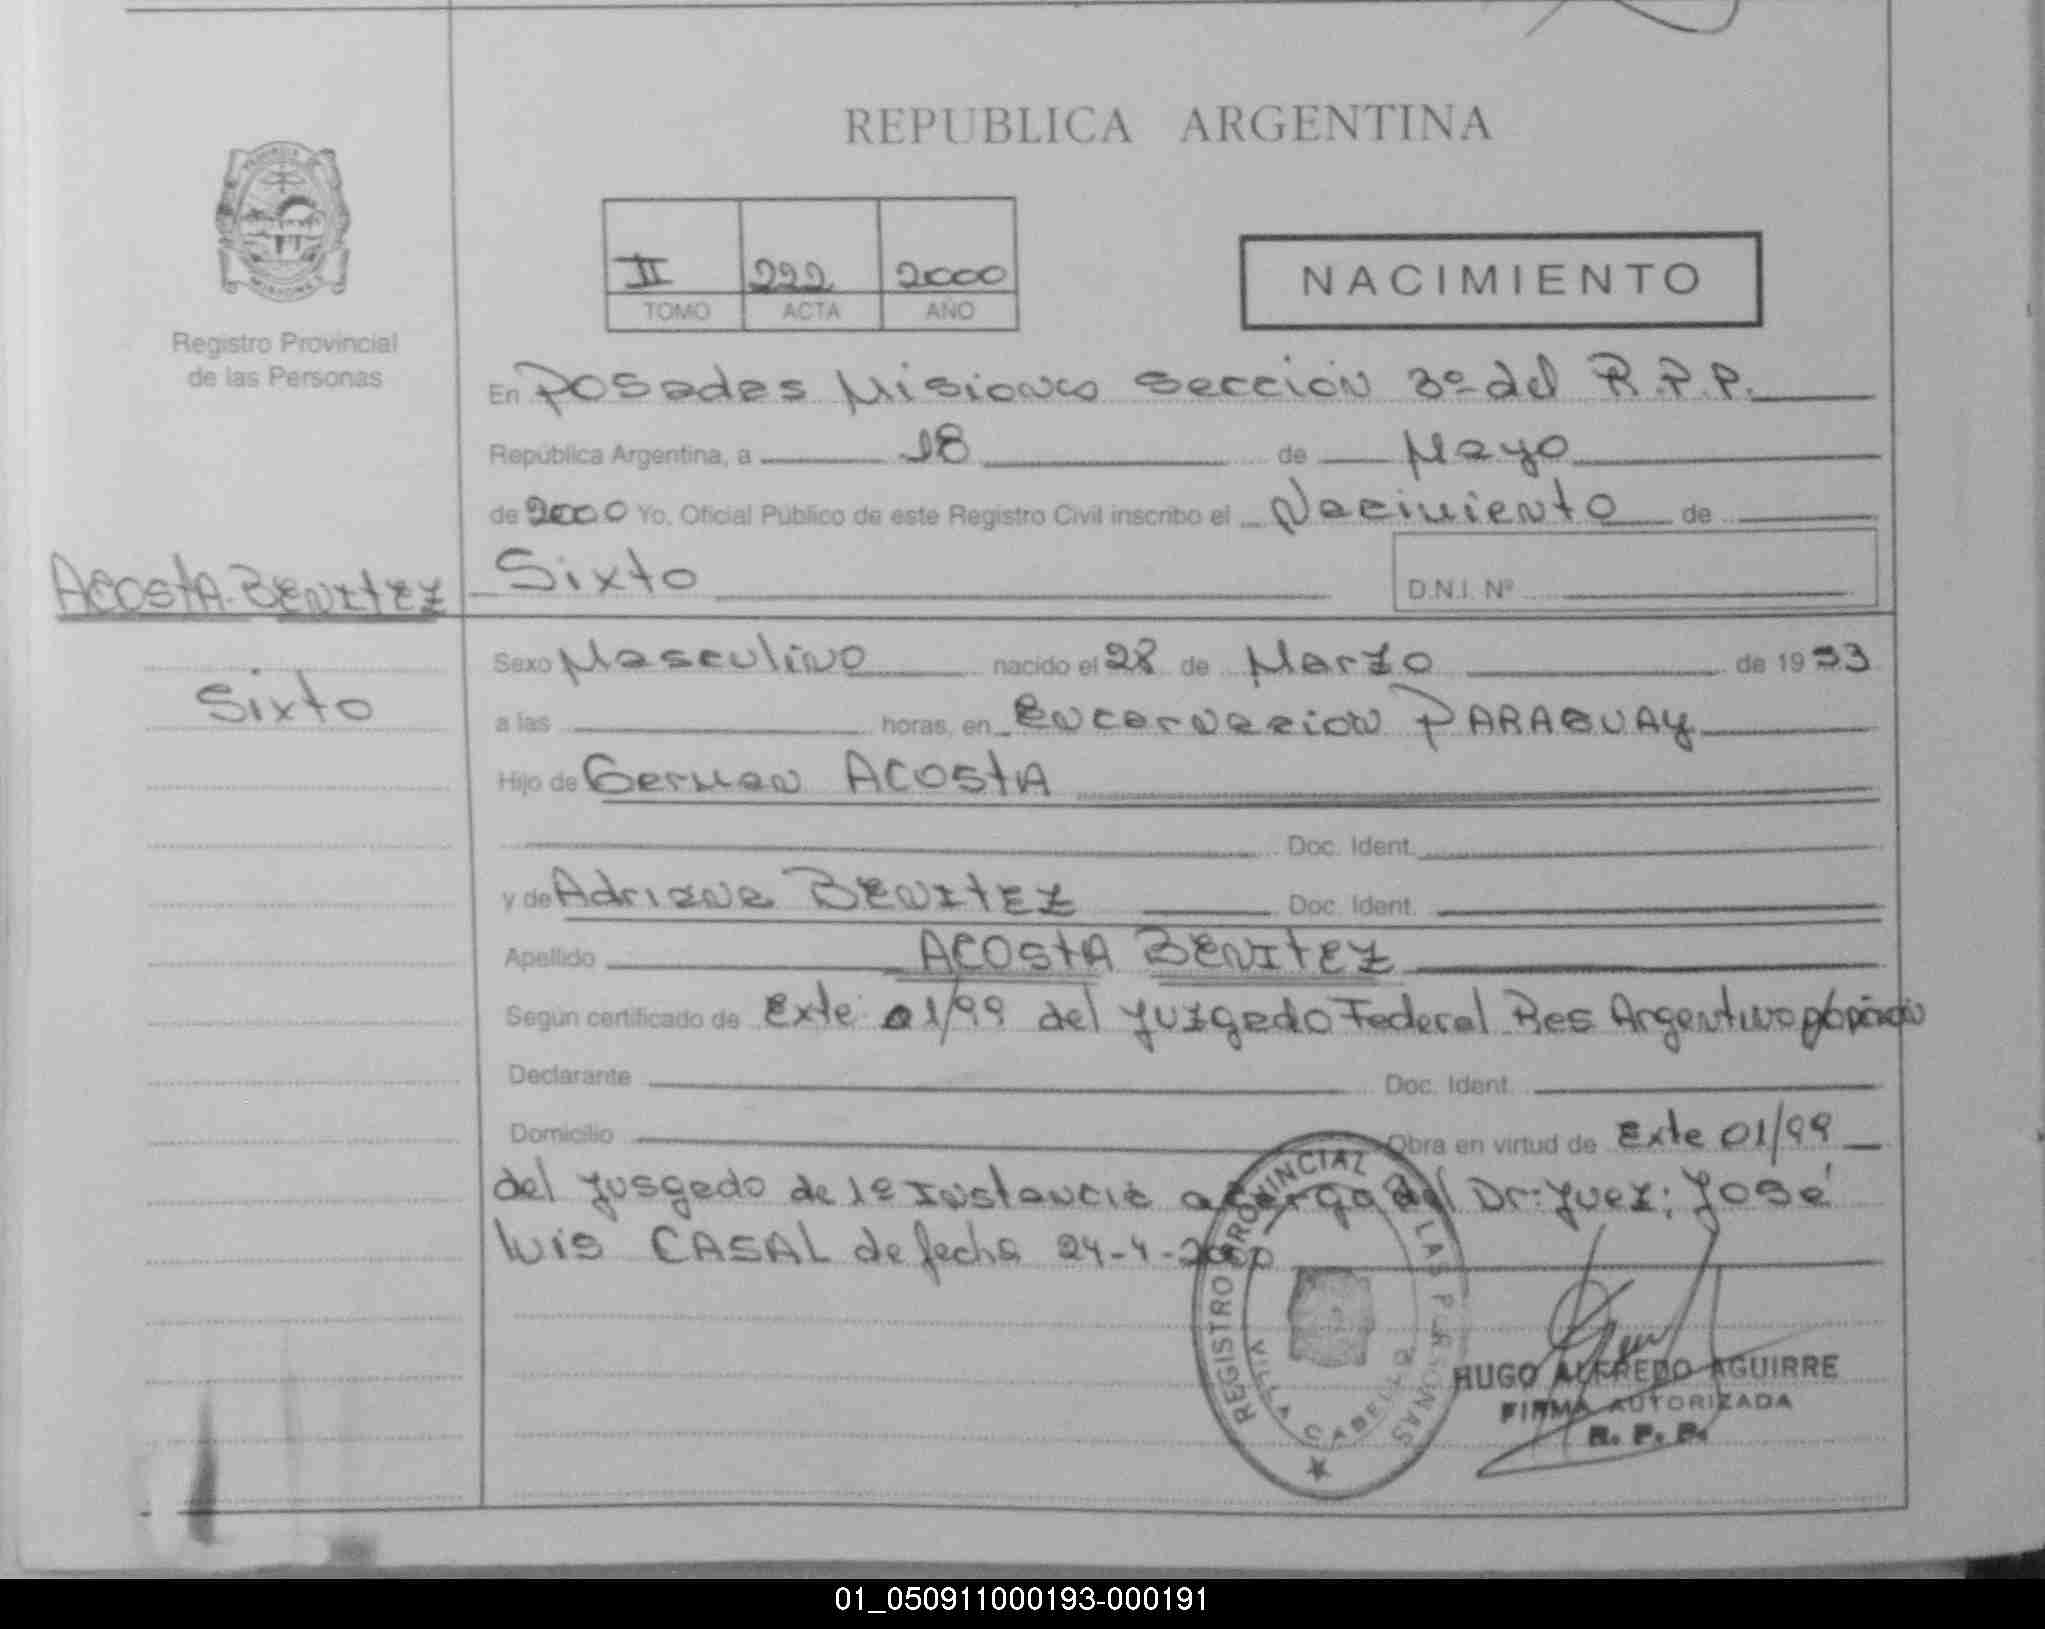 REPUBLICA ARGENTINA
II 222 2000
TOMO ACTA AÑO
NACIMIENTO
Registro Provincial
de las Personas
En Posadas Misiones Sección 3º del R.P.P.
República Argentina, a 18 de Mayo
de 2000 Yo, Oficial Público de este Registro Civil inscribo el Nacimiento de
ACOSTA BENITEZ
Sixto
Sixto D.N.I. Nº
Sexo Masculino nacido el 28 de Marzo de 19 33
a las horas, en Encarnacion PARAGUAY
Hijo de German ACOSTA
Doc. Ident.
y de Adriana BENITEZ Doc. Ident.
Apellido ACOSTA BENITEZ
Según certificado de Exte 01/99 del Juzgado Federal Res Argentino
Declarante Doc. Ident.
Domicilio Obra en virtud de Exte 01/99
del Jusgado de 1º Instancia a Cargo del Dr: Juez: José
Luis CASAL de fecha 24-4-2000
REGISTRO PROVINCIAL DE LAS PERSONAS
VILLA CABELLO
HUGO ALFREDO AGUIRRE
FIRMA AUTORIZADA
R. P. P.
01_050911000193-000191